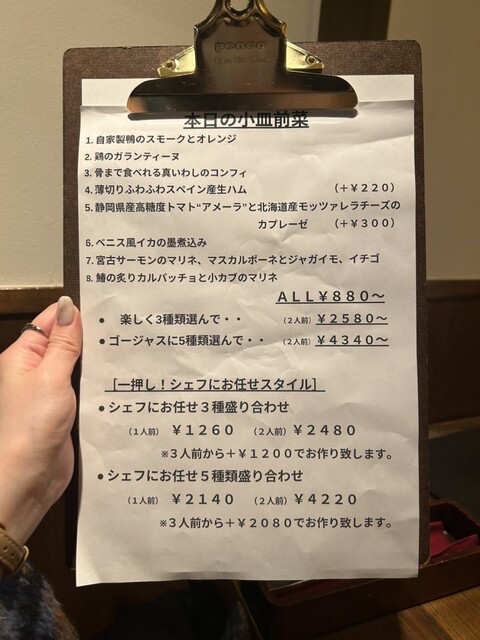 penco
本日の小皿前菜
1. 自家製鴨のスモークとオレンジ
2. 鶏のガランティーヌ
3. 骨まで食べれる真いわしのコンフィ
4. 薄切りふわふわスペイン産生ハム （＋￥２２０）
5. 静岡県産高糖度トマト“アメーラ”と北海道産モッツァレラチーズの
カプレーゼ （＋￥３００）
6. ベニス風イカの墨煮込み
7. 宮古サーモンのマリネ、マスカルポーネとジャガイモ、イチゴ
8. 鰆の炙りカルパッチョと小カブのマリネ
ＡＬＬ￥８８０～
● 楽しく3種類選んで・・ （２人前）￥２５８０～
● ゴージャスに5種類選んで・・ （２人前）￥４３４０～
［一押し！シェフにお任せスタイル］
● シェフにお任せ３種盛り合わせ
（１人前） ￥１２６０ （２人前）￥２４８０
※３人前から＋￥１２００でお作り致します。
● シェフにお任せ５種類盛り合わせ
（１人前） ￥２１４０ （２人前）￥４２２０
※３人前から＋￥２０８０でお作り致します。